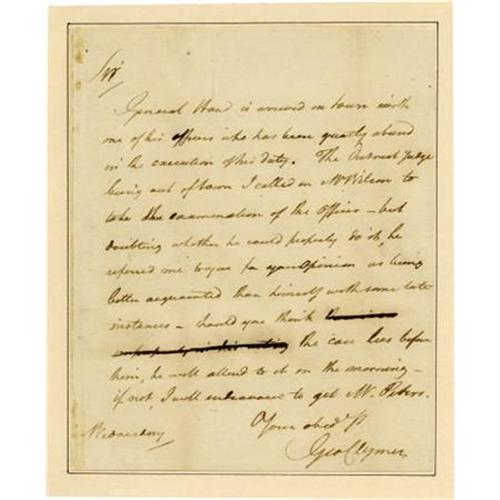 Sir
General Hand is arrived in town with
one of his officers who has been greatly abused
in the execution of his duty. The District Judge
being out of town I called on Mr Wilson to
take the examination of the officer – but
doubting whether he could properly do it, he
referred me to you for your opinion as being
better acquainted than himself with some late
instances – should you think
the case lies before
him, he will attend to it in the morning –
if not, I will endeavour to get Mr. Peters.
Your obed. St
Geo Clymer
Wednesday